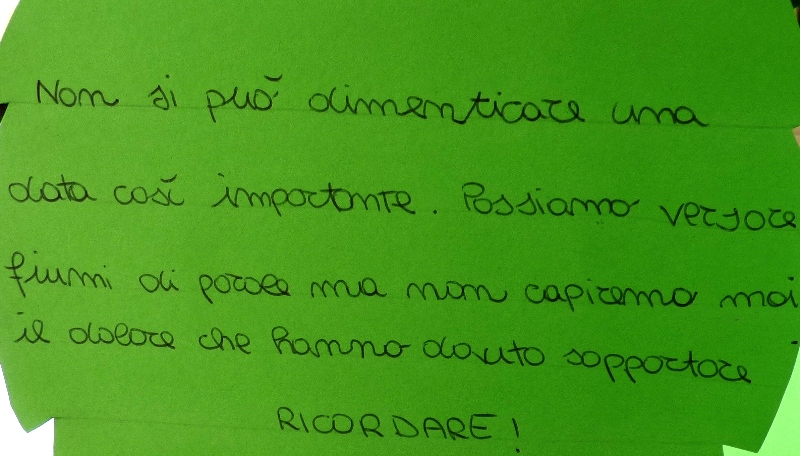 Non si può dimenticare una
data così importante. Possiamo versare
fiumi di parole ma non capiremo mai
il dolore che hanno dovuto sopportare
RICORDARE!